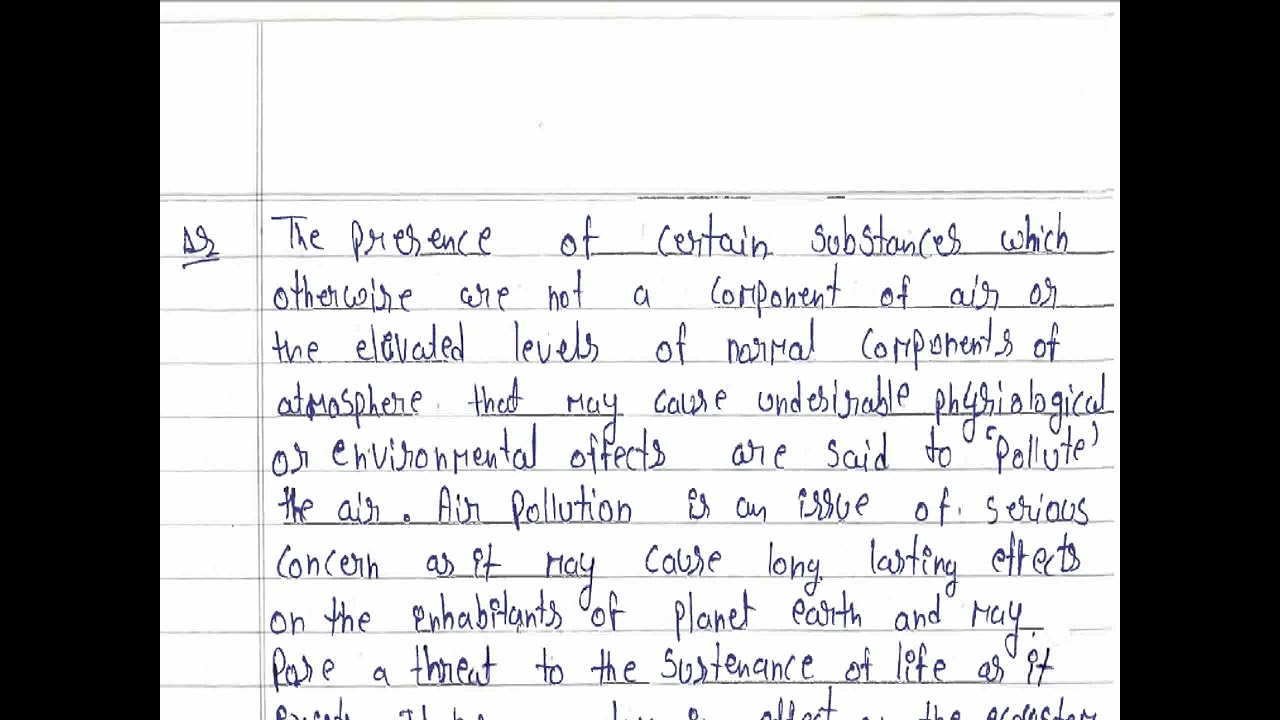 Ans The presence of certain substances which
otherwise are not a component of air or
the elevated levels of normal components of
atmosphere. that may cause undesirable physiological
or environmental effects are said to 'Pollute'
the air. Air Pollution is an issue of serious
concern as it may cause long lasting effects
on the enhabitants of planet earth and may
Pose a threat to the sustenance of life as it
effect the ecosystem